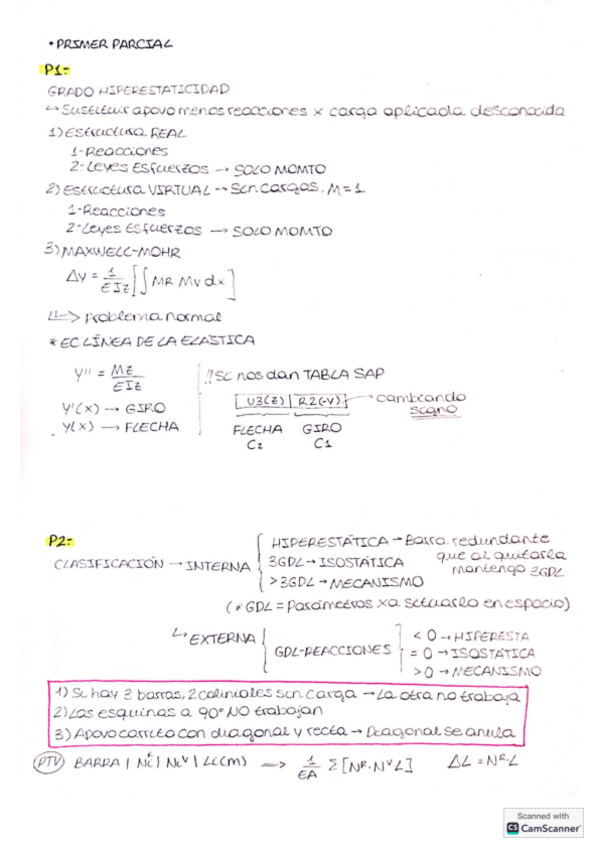 • PRIMER PARCIAL
P1:-
GRADO HIPERESTATICIDAD
↳ Sustituir apoyo menos reacciones x carga aplicada desconocida
1) Estructura REAL
1-Reacciones
2-Leyes Esfuerzos → SOLO MOMTO
2) Estructura VIRTUAL → Sin cargas, M=1
1-Reacciones
2-Leyes Esfuerzos → SOLO MOMTO
3) MAXWELL-MOHR
Δy = 1/EIz [∫ MR Mv dx]
↳> Problema normal
* EC LÍNEA DE LA ELÁSTICA
y'' = Mz/EIz
y'(x) → GIRO
y(x) → FLECHA
!! Si nos dan TABLA SAP
U3(z) | R2(-y) → cambiando signo
FLECHA GIRO
C2 C1
P2:-
CLASIFICACIÓN → INTERNA { HIPERESTÁTICA → Barra redundante que al quitarla mantengo 3GDL
3GDL → ISOSTÁTICA
>3GDL → MECANISMO
(* GDL = Parámetros xa situarlo en espacio)
↳ EXTERNA { GDL-REACCIONES { < 0 → HIPERESTA
= 0 → ISOSTÁTICA
> 0 → MECANISMO
1) Si hay 3 barras, 2 colineales sin carga → La otra no trabaja
2) Las esquinas a 90º NO trabajan
3) Apoyo carrito con diagonal y recta → Diagonal se anula
PTV BARRA | Ni^R | Ni^V | Li(m) ⟶ 1/EA Σ [N^R · N^V L] ΔL = N^R · L
Scanned with
CS CamScanner